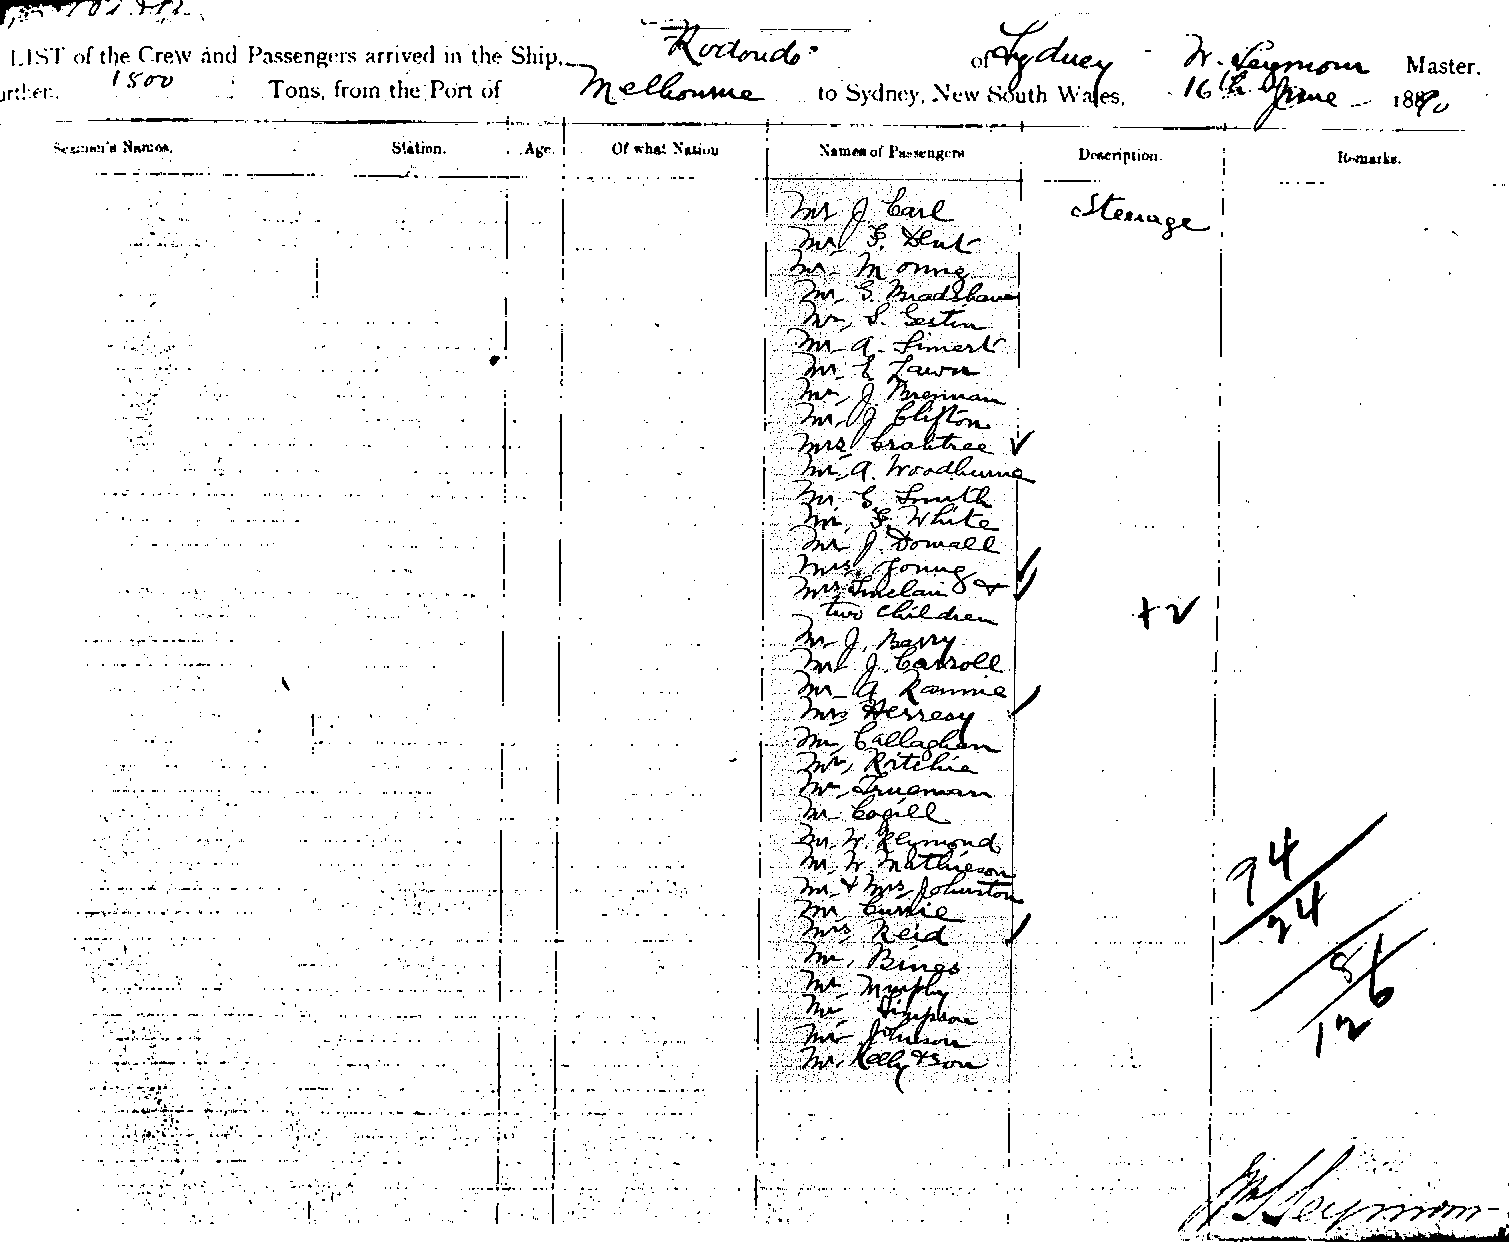 LIST of the Crew and Passengers arrived in the Ship, Rodondo of Sydney W. Seymour Master,
urthen, 1800 Tons, from the Port of Melbourne to Sydney, New South Wales, 16th June 1890
Seaman's Names. Station. Age. Of what Nation Names of Passengers Description. Remarks.
Mr J Carl Steerage
Mr F. Dent
Mr M
Mr G. Bradshaw
Mr S.
Mr A.
Mr E Lawn
Mr J Brennan
Mr J Clifton
Mrs Crabtree
Mr A. Woodburne
Mr G Smith
Mr F. White
Mr J. Dowall
Mrs Young
Mrs Sinclair &
two children + 2
Mr J. Berry
Mr J. Carroll
Mr A Rannie
Mrs
Mr Callaghan
Mr Ritchie
Mr Trueman
Mr Cogill
Mr W.
Mr W. Mathieson
Mr & Mrs Johnston
Mr Currie
Mrs Reid
Mr
Mr Murphy
Mr Simpson
Mr Johnson
Mr Kelly & Son
94
24
8
6
12
Seymour